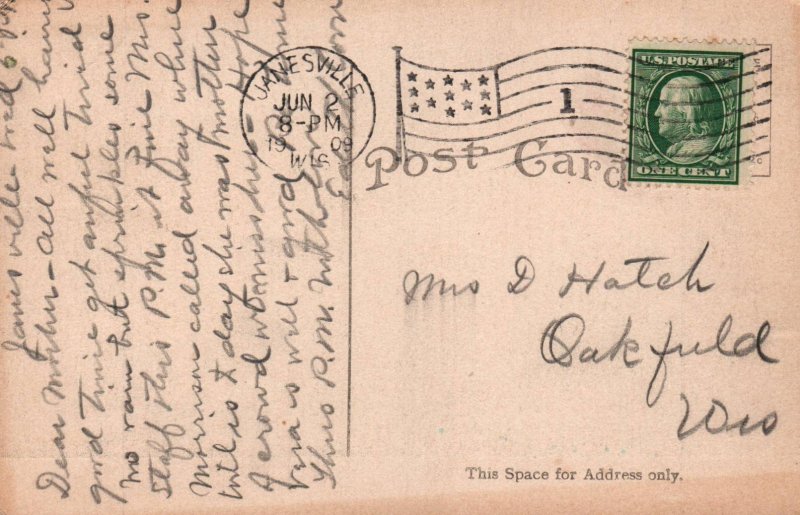 Janesville Wed
Dear Mother - All well having
good time get awful tired
no rain but sprinkles some
staff this P.M. it fine Mrs.
Morrison called away while
will is to day she was mother
of crowd we miss her - Hope
is well & good
this P.M. with love
JANESVILLE
JUN 2
8-PM
1909
WIS.
1
U.S. POSTAGE
ONE CENT
Post Card
Mrs D Hatch
Oakfield
Wis
This Space for Address only.